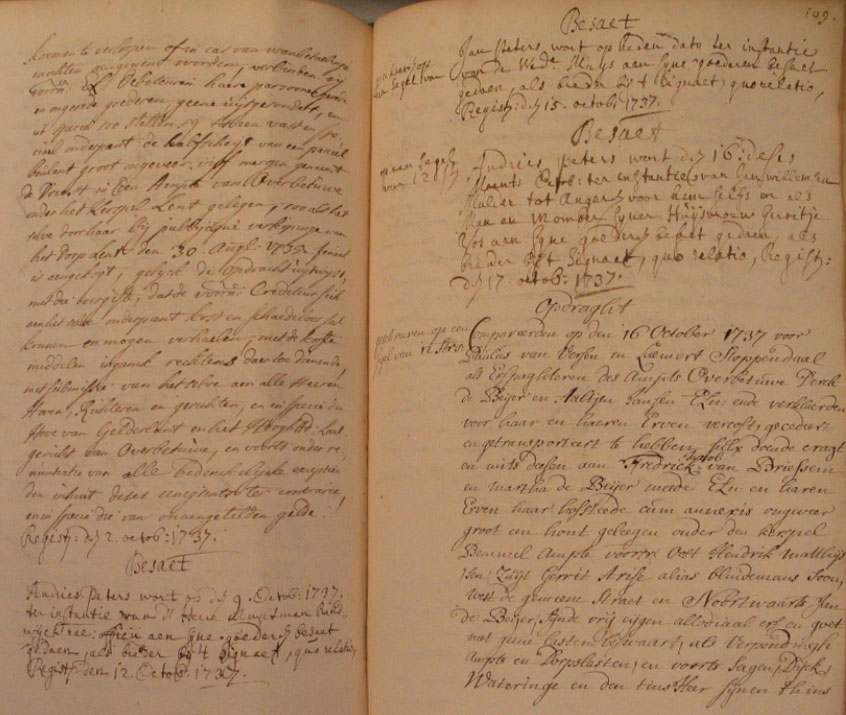 koomen te verloopen of in cas van wanbetaelinge
mochten ongewent worden, verbinden sij
voorn: Eluÿden Debiteuren haere persoonen
en ingerede goederen, geene uijtgesondert, en
speciael onderpant de halfscheijt van een perceel
bouland groot ongeveer vijf mergen genaemt
de Voorst in den Ampte van Overbetuwe
onder het kerspel Lent gelegen, soo als het
selve door haer bij publijcque verkopinge van
het dorp Lent den 30 Augt: 1735
is aengekogt, gelijck de opdracht uijtwijst,
met die overgifte, dat de voorn: Crediteur sich
aen het selve onderpant kost en schaedeloos sal
konnen en mogen verhaelen, met de koste
middelen ingank rechtens daer toe dienende
met submissie van het selve aen alle Heeren
Haven, Richteren en gerichten, en in specie den
Hove van Gelderlant en het Hooghd: Lant
gericht van Overbetuwe, en voorts onder re,
nuntiatie van alle bedenckelijcke exceptien
den inhout deses eenigsints ter contrarie,
en in specie die van onaengetelden gelde.
Regist: d: 2. octob: 1737.
Besaet
Andries Peters wort op de 9. Octob: 1737.
ter instantie van d' Heer Amptman
aen syne goederen besaet
gedaen, als breeder bij 't Signaet, quo relatio,
Regist: den 12 Octob: 1737.
109.
Besaet
Jan Peters wort op heden dato ter instantie
van de Wede: Muys aen syne goederen besaet
gedaen, als breeder bij 't Signaet, quo relatio,
Regist: d: 15. octob 1737.
Besaet
Andries Peters wort d: 16: deses
Maents Octob: ter instantie van Jan Willem van
tot Angeren voor hem selfs en als
Man en Momber syner Huijsvrouw Geritje
Vos aen syne goederen besaet gedaen, als
breeder bij 't Signaet, quo relatio, Regist:
d: 17. octob: 1737.
Opdraght
geschreven op een
segel van 12 strs:
Compareerden op den 16 October 1737 voor
Paulus van Versen en Liemert Stoppendaal
als Erfpagteren des Ampts Overbetuwe Derck
de Beijer en Aeltjen Jansen ELu: ende verklaerden
voor haar en haeren Erven vercoft, gecedeert
en getransporteert te hebben, sulx doende cragt
en mits deesen aan Fredrick Jacob van Brieſsem
en Martha de Beijer mede ELu: en haren
Erven haar hofstede cum annexis ongeveer
groot een hont geleegen onder den kerspel
Bemmel Ampte voors: Oost Hendrik Matthijs
sen, Zuijt Gerrit Arisse alias blindemans Soon,
West de gemeene Straet en Noortwaarts Jan
de Beijer, sijnde vrij eijgen allodiaal erf en goet
met geene lasten beswaart, als Verpondingh
Ampts en Dorpslasten, en voorts Segen, Dijck,
Wateringe en den tins Heer sijnen thins